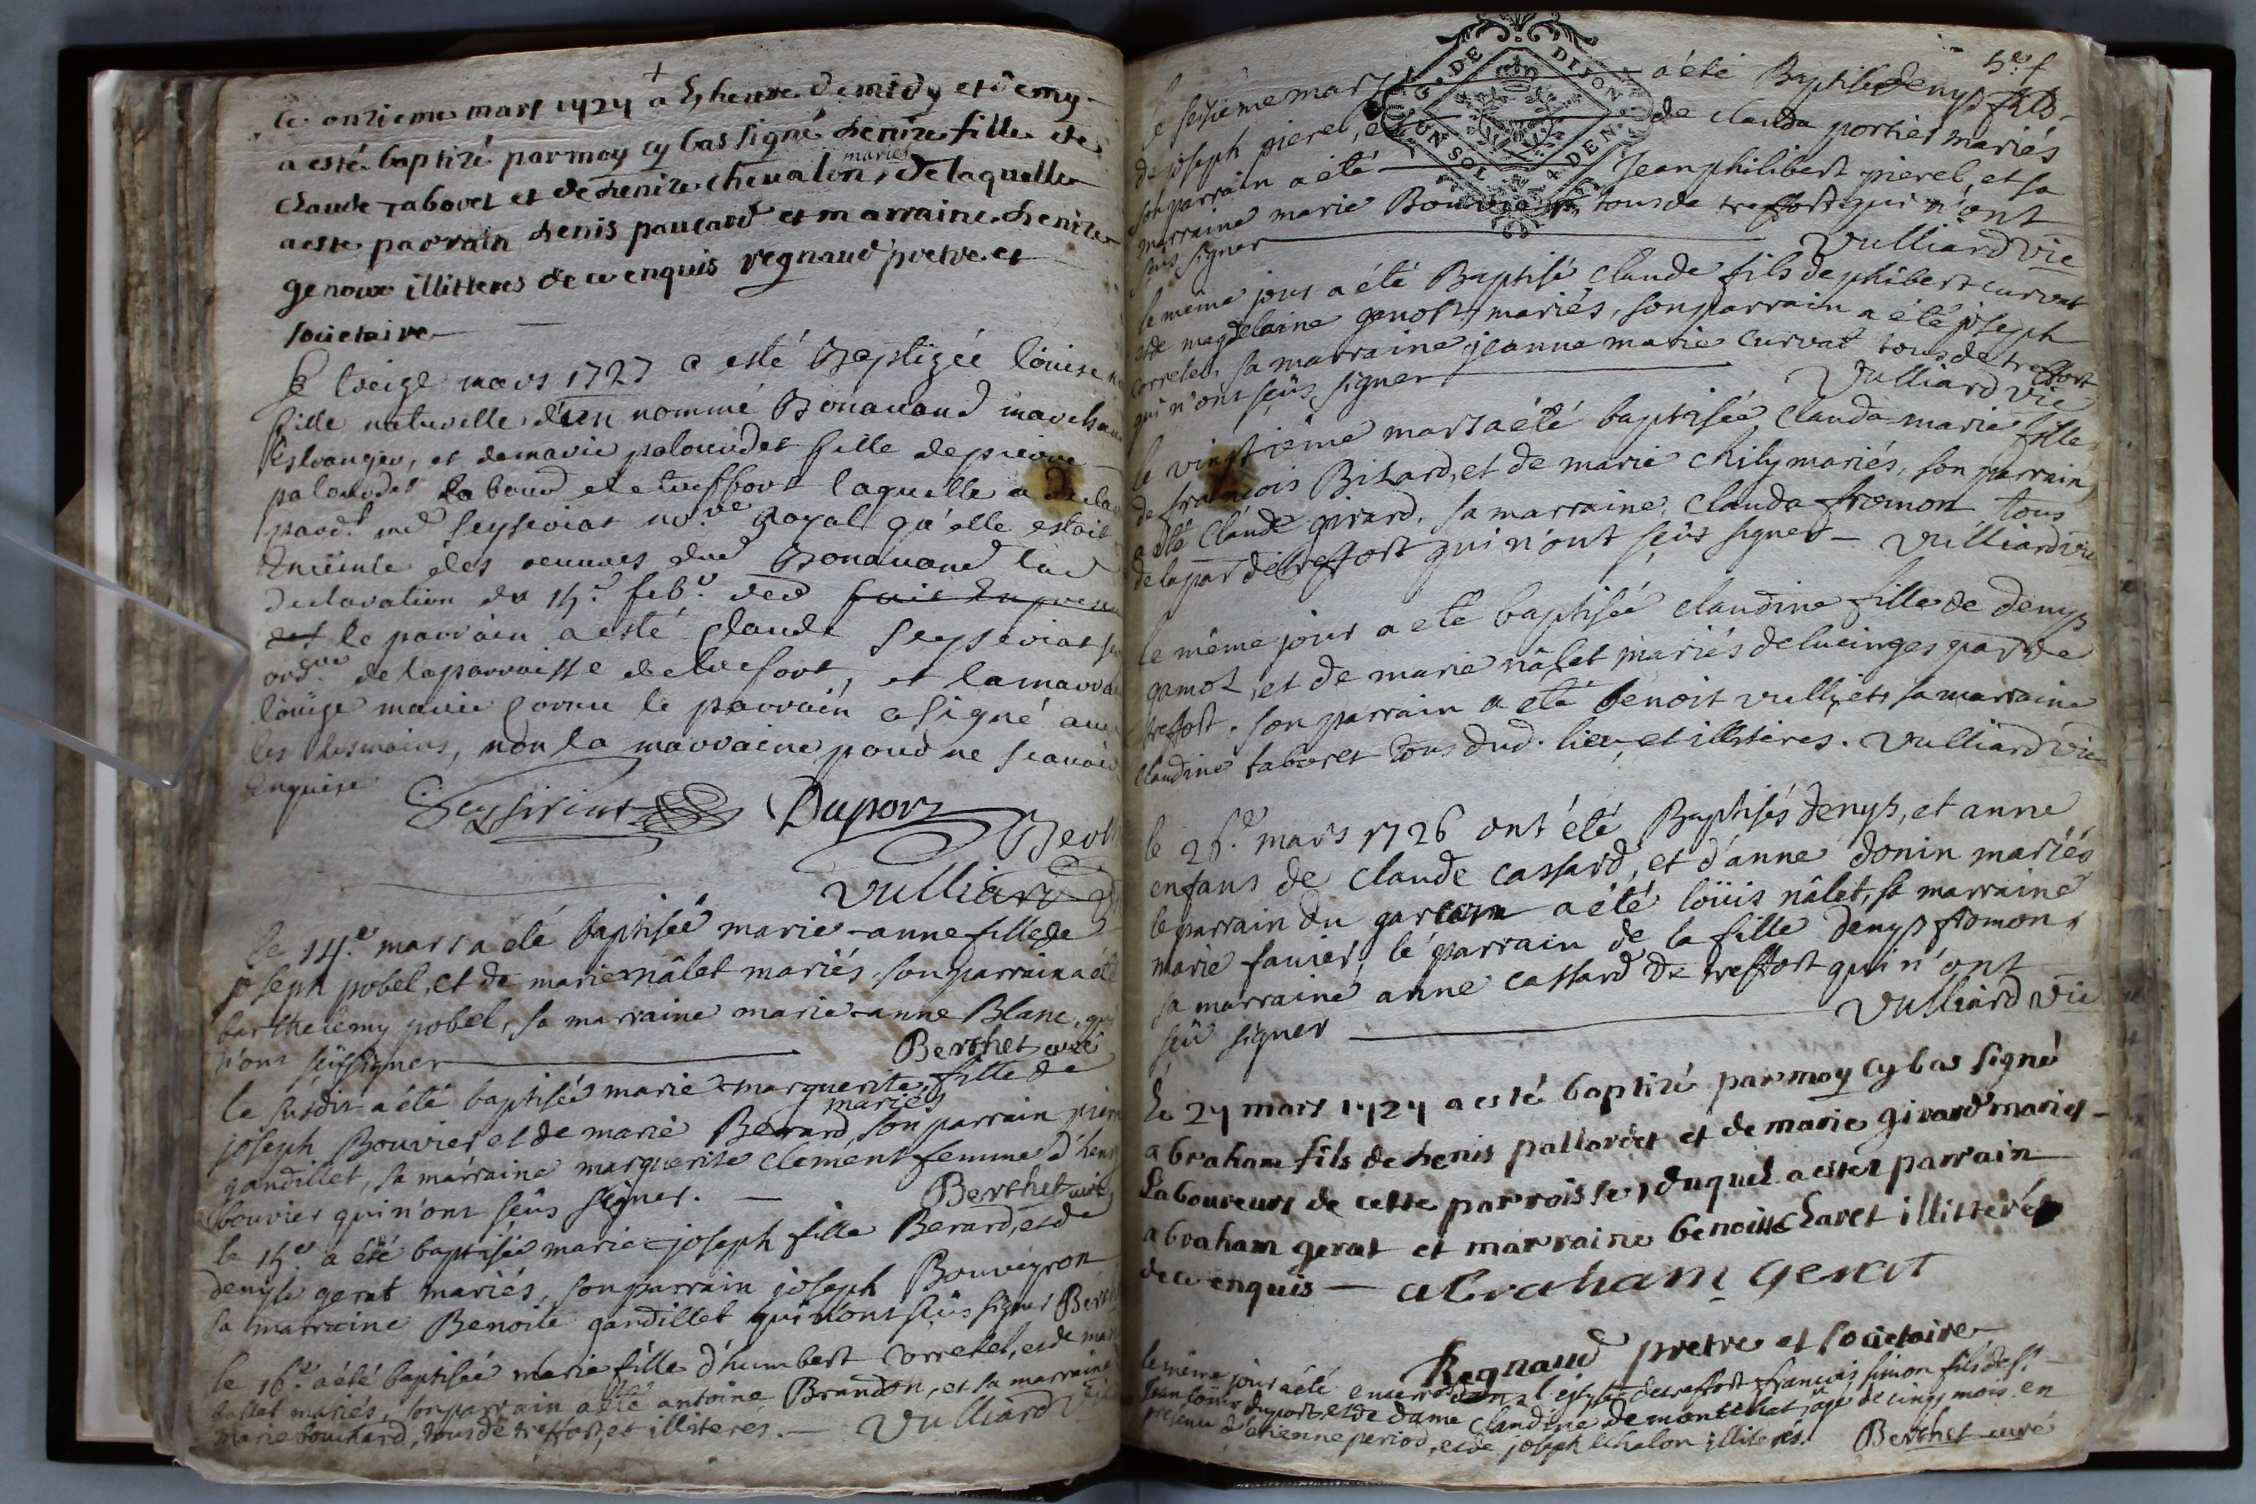 le onzieme mars 1727 a heure de midy et demy
a esté baptizé par moy cy bas signé denize fille de
Claude tabovet et de denize chevalon mariés, de laquelle
a este parrain denis paucard et marraine denize
genoux illitteres de ce enquis regnaud pretre et
societaire
Le treize mars 1727 a esté Baptizée Louise
fille naturelle d'un nommé Bonavaud marchand
Estranger, et de marie palourdet fille de pierre
palourdet labour de treffort laquelle a
pard. me Seyseriat no.re Royal qu'elle estoit
Enceinte des oeuvres dud Bonavaud lad
declaration du 15.e feb.r
le parrain a esté Claude Seyseriat
ord.re de la parroisse de trefort, et la marraine
louise marie le parrain a signé avec
les tesmoins, non la marraine pour ne scavoir
Enquise
Seyseriat Dupor
Vulliard
le 14.e mars a été baptisée marie-anne fille de
joseph pobel, et de marie nâlet mariés son parrain a été
barthelemy pobel, sa marraine marie-anne Blanc, qui
n'ont sçû signer Berthet curé
le susdit a été baptisée marie-marguerite fille de
joseph Bouvier et de marie Berard mariés, son parrain
gandillet, sa marraine marguerite Clement femme d'
bouvier qui n'ont sçûs signer. Berthet curé
le 15.e a été baptisée marie-joseph fille Berard, et de
denyse gerat mariés, son parrain joseph Bouveyron
sa marraine Benoite gandillet qui n'ont sçûs signer
le 16.e a été baptisée marie fille d'humbert Corretel, et de
tallet mariés, son parrain a été antoine Brandon, et sa marraine
marie bouchard, tous de treffort, et illiterés. Vulliard
G. DE DIJON
UN SOL 4 DEN
le seizieme mars a été Baptisé denys fils
de joseph pierel, et de clauda portier mariés
son parrain a été jean philibert pierel, et sa
marraine marie Bouvier tous de treffort qui n'ont
sçûs signer Vulliard vic
le meme jour a été Baptisé Claude fils de phibert curvat
et de magdelaine genost mariés, son parrain a été joseph
corretel, sa marraine jeanne marie curvat tous de treffort
qui n'ont sçûs signer Vulliard vic
le vingtieme mars a été baptisée clauda-marie fille
de françois Bizard, et de marie Chily mariés, son parrain
a été Claude girard, sa marraine, Clauda fromon tous
de la par de treffort qui n'ont sçûs signer - Vulliard vic
le même jour a eté baptisée claudine fille de denys
gamot, et de marie nâlet mariés de lucinges par de
treffort. son parrain a été benoit vulliet, sa marraine
Claudine taboret tous dud. lieu, et illiteres. Vulliard vic
le 26.e mars 1726 ont été Baptisés denys, et anne
enfans de Claude cassard, et d'anne donin mariés
le parrain du garcon a été loüis nâlet, sa marraine
marie favier, le parrain de la fille denys fromon,
sa marraine anne cassard de treffort qui n'ont
sçû signer Vulliard vic
le 27 mars 1727 a esté baptizé par moy cy bas signé
abraham fils de denis pallordet et de marie girard mariés
Laboureurs de cette parroisse, duquel a estez parrain
abraham gerat et marraine benoitte Claret illitterés
de ce enquis - abraham gerat
Regnaud pretre et societaire
le même jour a été enterré dans l'église de treffort françois simon fils de s.r
Jean loüis duport, et de dame claudine de montenat agé de cinq mois en
présence d'étienne period, et de joseph chalon illiterés. Berthet curé